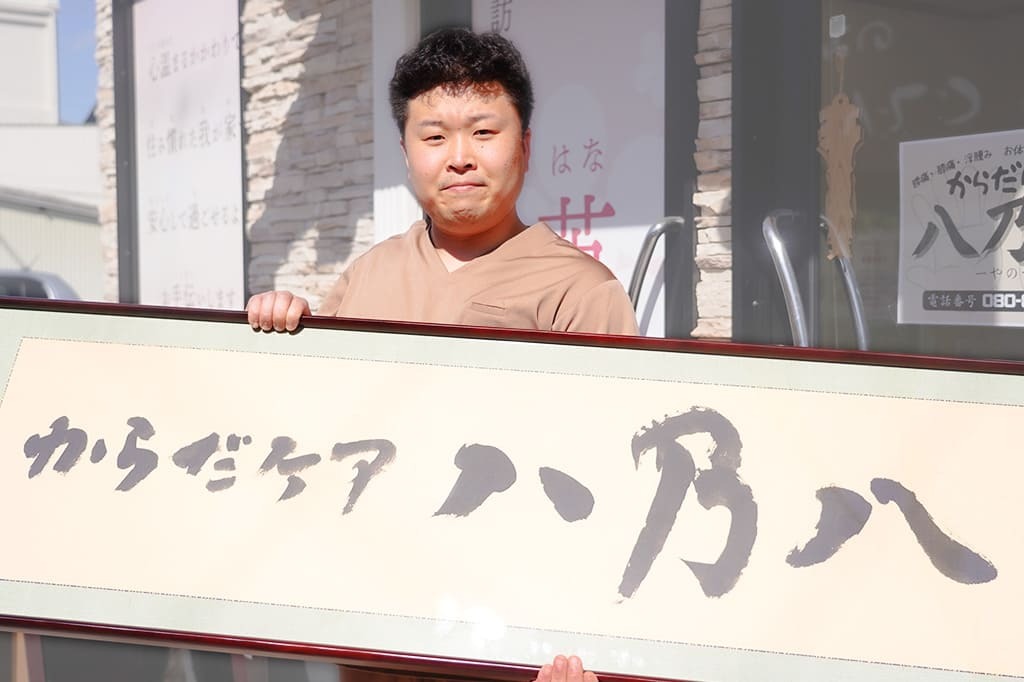 心温まるかかわりで
住み慣れた我が家
安心して過ごせるよ
お手伝いします
訪
はな
花
膝痛・腰痛・浮腫み お体
からだ
八乃
ーやの
電話番号 080-
からだケア 八乃八